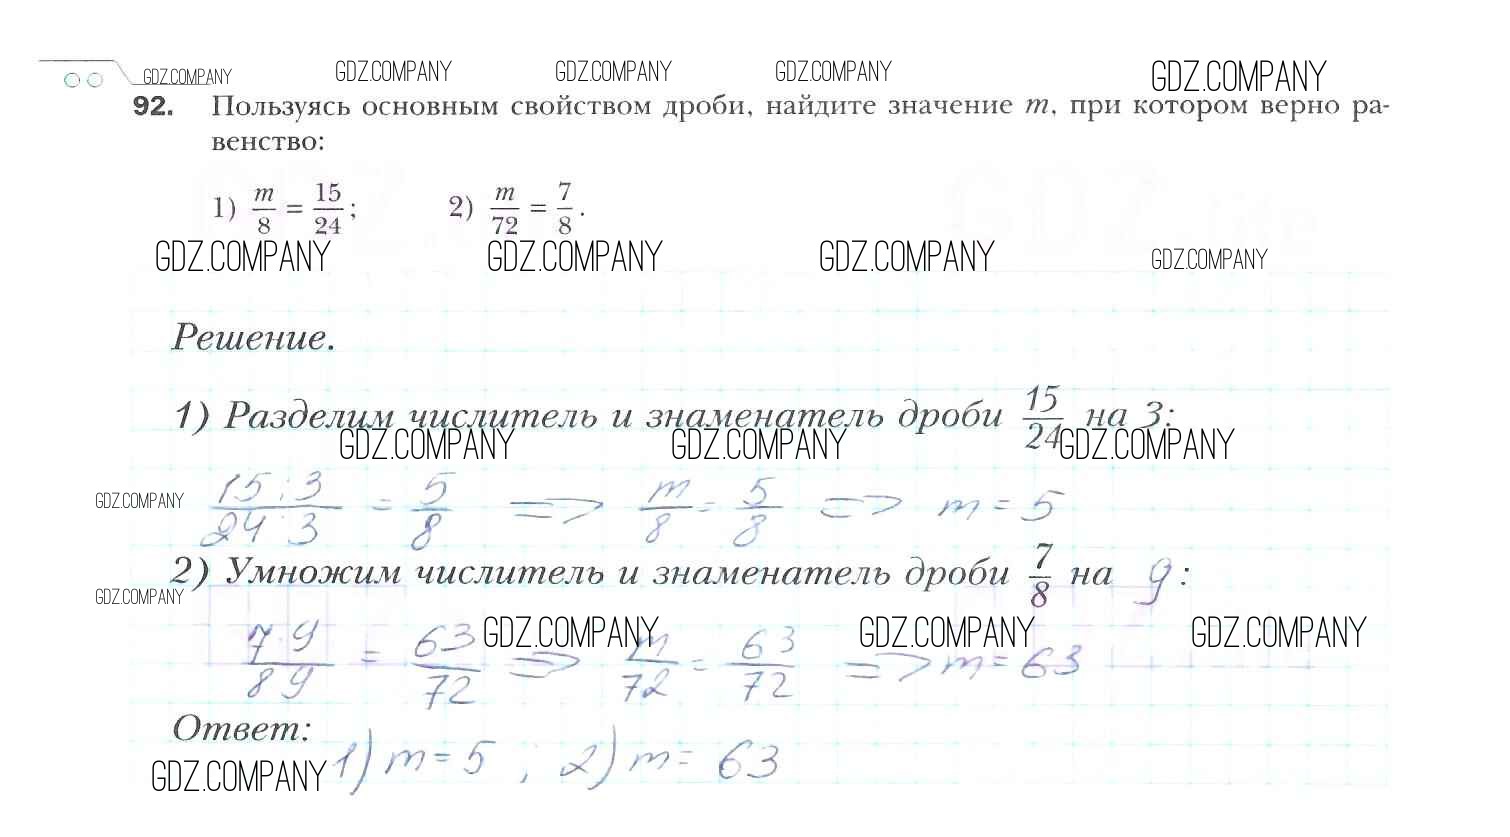 GDZ.COMPANY GDZ.COMPANY GDZ.COMPANY GDZ.COMPANY GDZ.COMPANY
92. Пользуясь основным свойством дроби, найдите значение m, при котором верно ра-
венство:
1) m/8 = 15/24; 2) m/72 = 7/8.
GDZ.COMPANY GDZ.COMPANY GDZ.COMPANY GDZ.COMPANY
Решение.
1) Разделим числитель и знаменатель дроби 15/24 на 3:
GDZ.COMPANY GDZ.COMPANY GDZ.COMPANY
GDZ.COMPANY 15:3/24:3 = 5/8 => m/8 = 5/8 => m = 5
2) Умножим числитель и знаменатель дроби 7/8 на 9:
GDZ.COMPANY
GDZ.COMPANY GDZ.COMPANY GDZ.COMPANY
7·9/8·9 = 63/72 => m/72 = 63/72 => m = 63
Ответ:
GDZ.COMPANY 1) m = 5 ; 2) m = 63